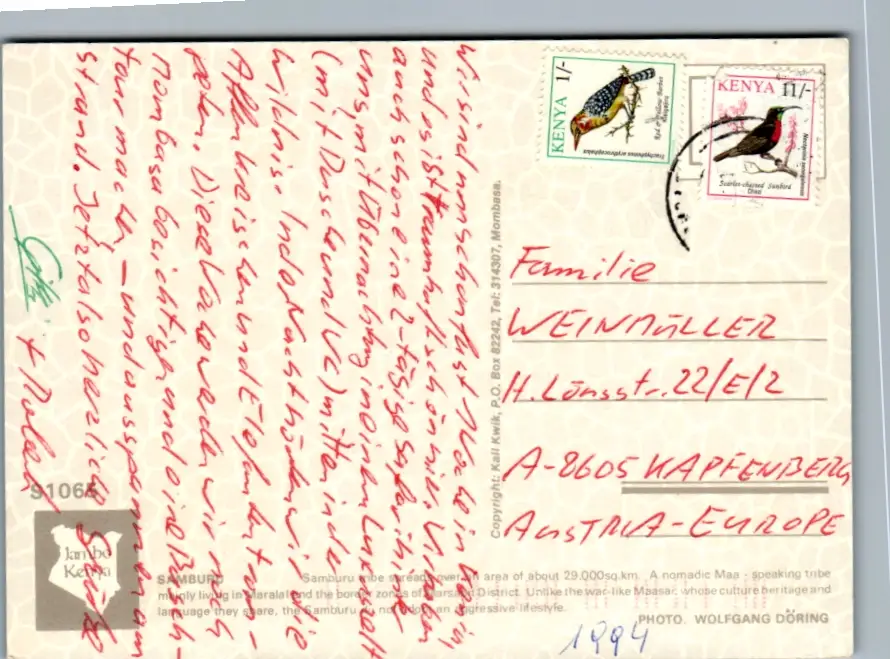 Wir sind nun schon fast 1 Woche in Kenia,
und es ist traumhaft schön hier. Wir haben
auch schon eine 2-tägige Safari hinter
uns, mit Übernachtung in einem Luxuszelt
(mit Dusche und WC) mitten in der
Wildnis. In der Nacht hörten wir die
Affen kreischen und Elefanten trom-
peten. Diese Woche werden wir noch
Mombasa besichtigen und eine Busch-
tour machen – und ausspannen am
Strand. Jetzt also herzliche Grüße
+
KENYA 1/-
Red & Yellow Barbet
Trachyphonus erythrocephalus
KENYA 11/-
Scarlet-chested Sunbird
Familie
WEINMÜLLER
H. Lönsstr. 22/E/2
A-8605 KAPFENBERG
AUSTRIA-EUROPE
Copyright: Kall Kwik, P.O. Box 82242, Tel: 314307, Mombasa.
S1065
Jambo
Kenya
SAMBURU Samburu tribe spreads over an area of about 29.000sq.km. A nomadic Maa - speaking tribe
mainly living in Maralal and the border zones of Marsabit District. Unlike the war-like Maasai, whose culture heritage and
language they share, the Samburu do not adopt an aggressive lifestyle.
PHOTO. WOLFGANG DÖRING
1994